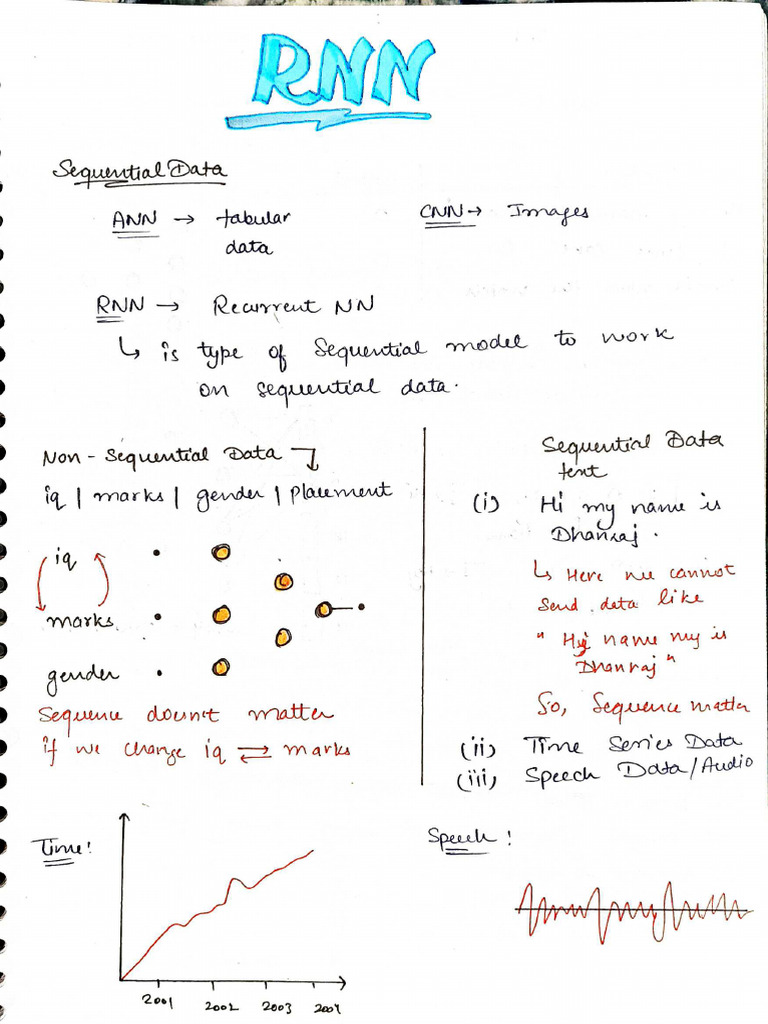 RNN
Sequential Data
ANN → tabular
data
CNN → Images
RNN → Recurrent NN
↳ is type of Sequential model to work
on sequential data.
Non - Sequential Data
iq | marks | gender | Placement
iq
marks
gender
Sequence doesn't matter
if we change iq ⇄ marks
Sequential Data
text
(i) Hi my name is
Dhanraj.
↳ Here we cannot
send data like
" Hi name my is
Dhanraj "
So, Sequence matter
(ii) Time Series Data
(iii) Speech Data/Audio
Time!
2001 2002 2003 2004
Speech!